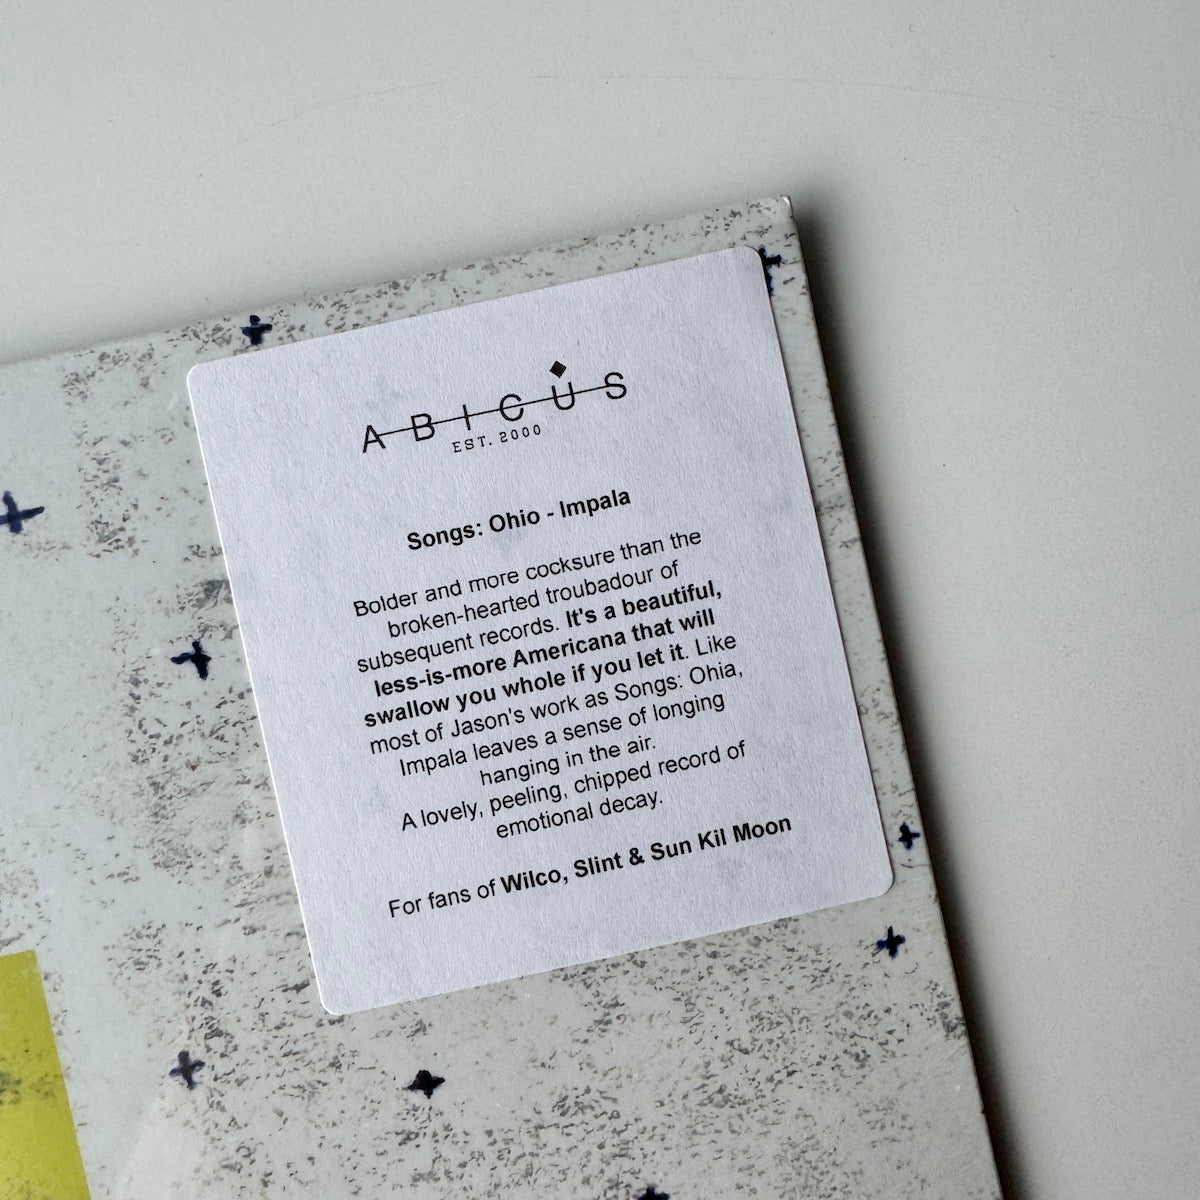 ABICUS
EST. 2000
Songs: Ohio - Impala
Bolder and more cocksure than the
broken-hearted troubadour of
subsequent records. It's a beautiful,
less-is-more Americana that will
swallow you whole if you let it. Like
most of Jason's work as Songs: Ohia,
Impala leaves a sense of longing
hanging in the air.
A lovely, peeling, chipped record of
emotional decay.
For fans of Wilco, Slint & Sun Kil Moon